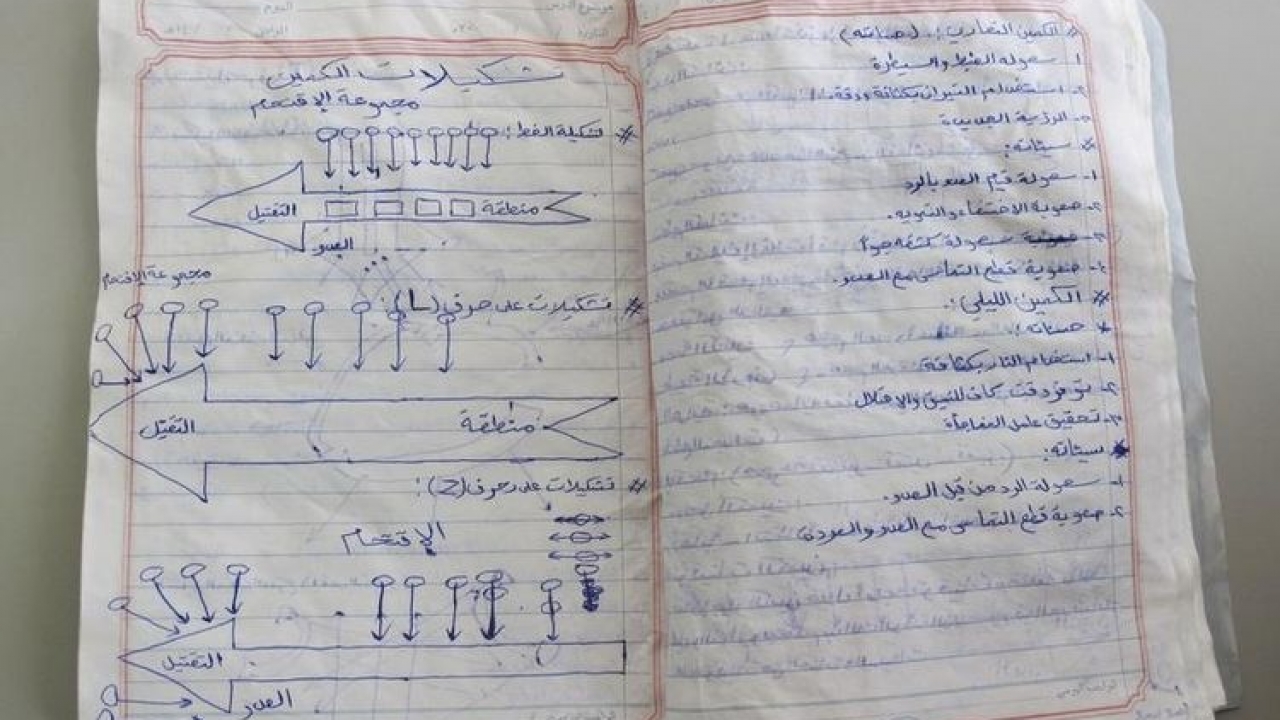 # الكمين النهاري: (حسناته)
١ سهولة الضبط والسيطرة
٢- استخدام النيران بكثافة ودقة
٣- الرؤية الجيدة
* سيئاته:
١- سهولة قيام العدو بالرد
٢- صعوبة الاختفاء والتمويه.
٣- سهولة كشفه جواً
٤- صعوبة قطع التماس مع العدو.
# الكمين الليلي:
* حسناته:
١- استخدام النار بكثافة
٢- توفر وقت كاف للتسلل والاحتلال
٣- تحقيق عامل المفاجأة
* سيئاته:
١- سهولة الرد من قبل العدو.
٢- صعوبة قطع التماس مع العدو والعودة
تشكيلات الكمين
مجموعة الإقتحام
# تشكيلة الخط:
منطقة
التقتيل
العدو
مجموعة الإقتحام
# تشكيلات على حرف (L):
منطقة
التقتيل
# تشكيلات على حرف (Z):
الإقتحام
التقتيل
العدو